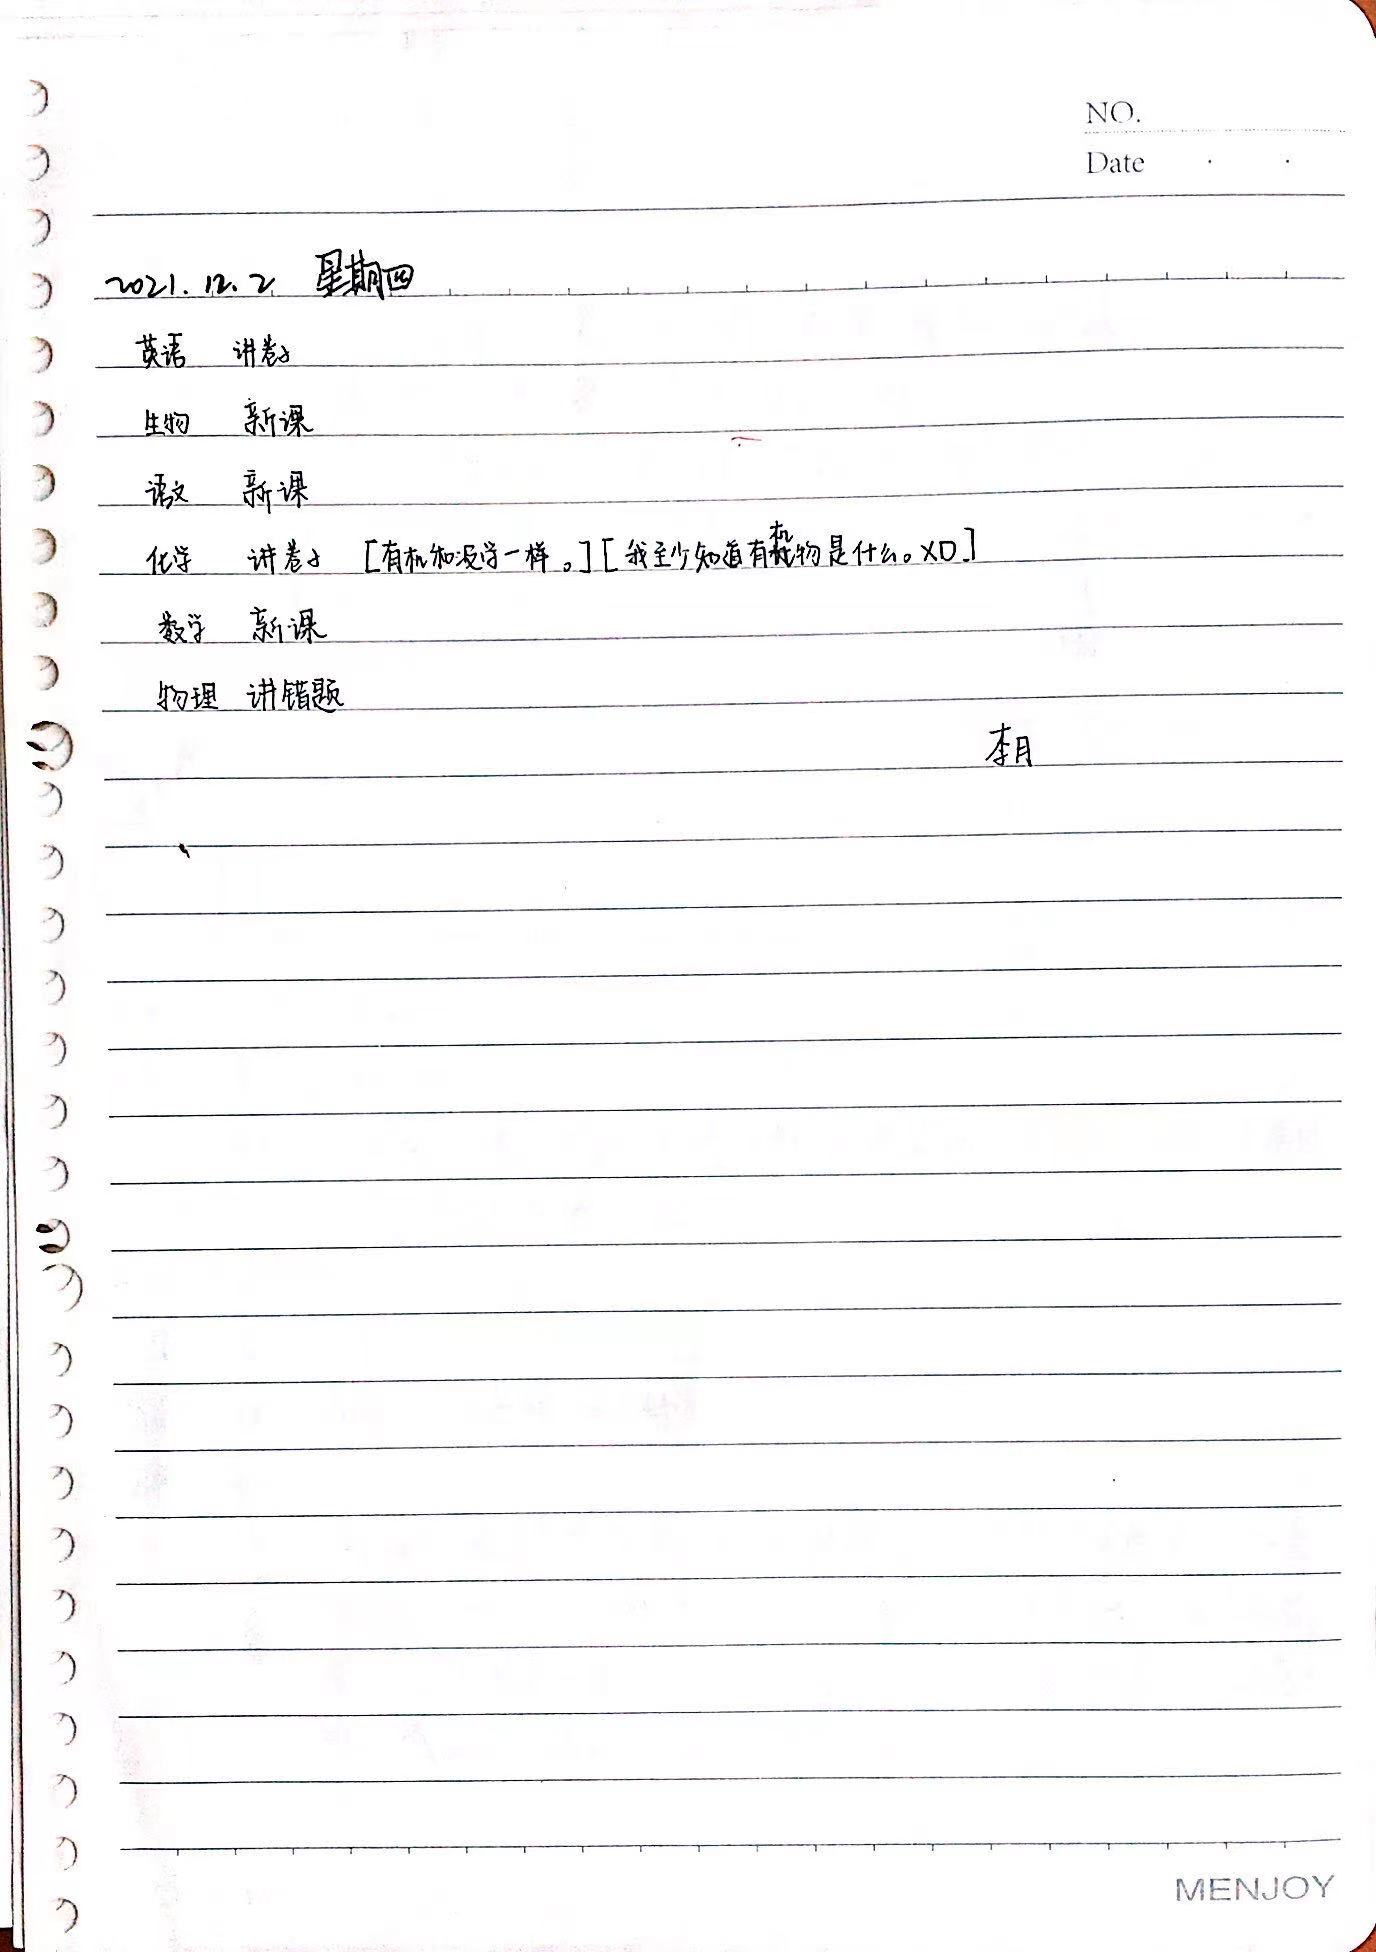 NO.
Date
2021.12.2 星期四
英语 讲卷子
生物 新课
语文 新课
化学 讲卷子 [有机和没学一样。][我至少知道有机物是什么。XD.]
数学 新课
物理 讲错题
李月
MENJOY